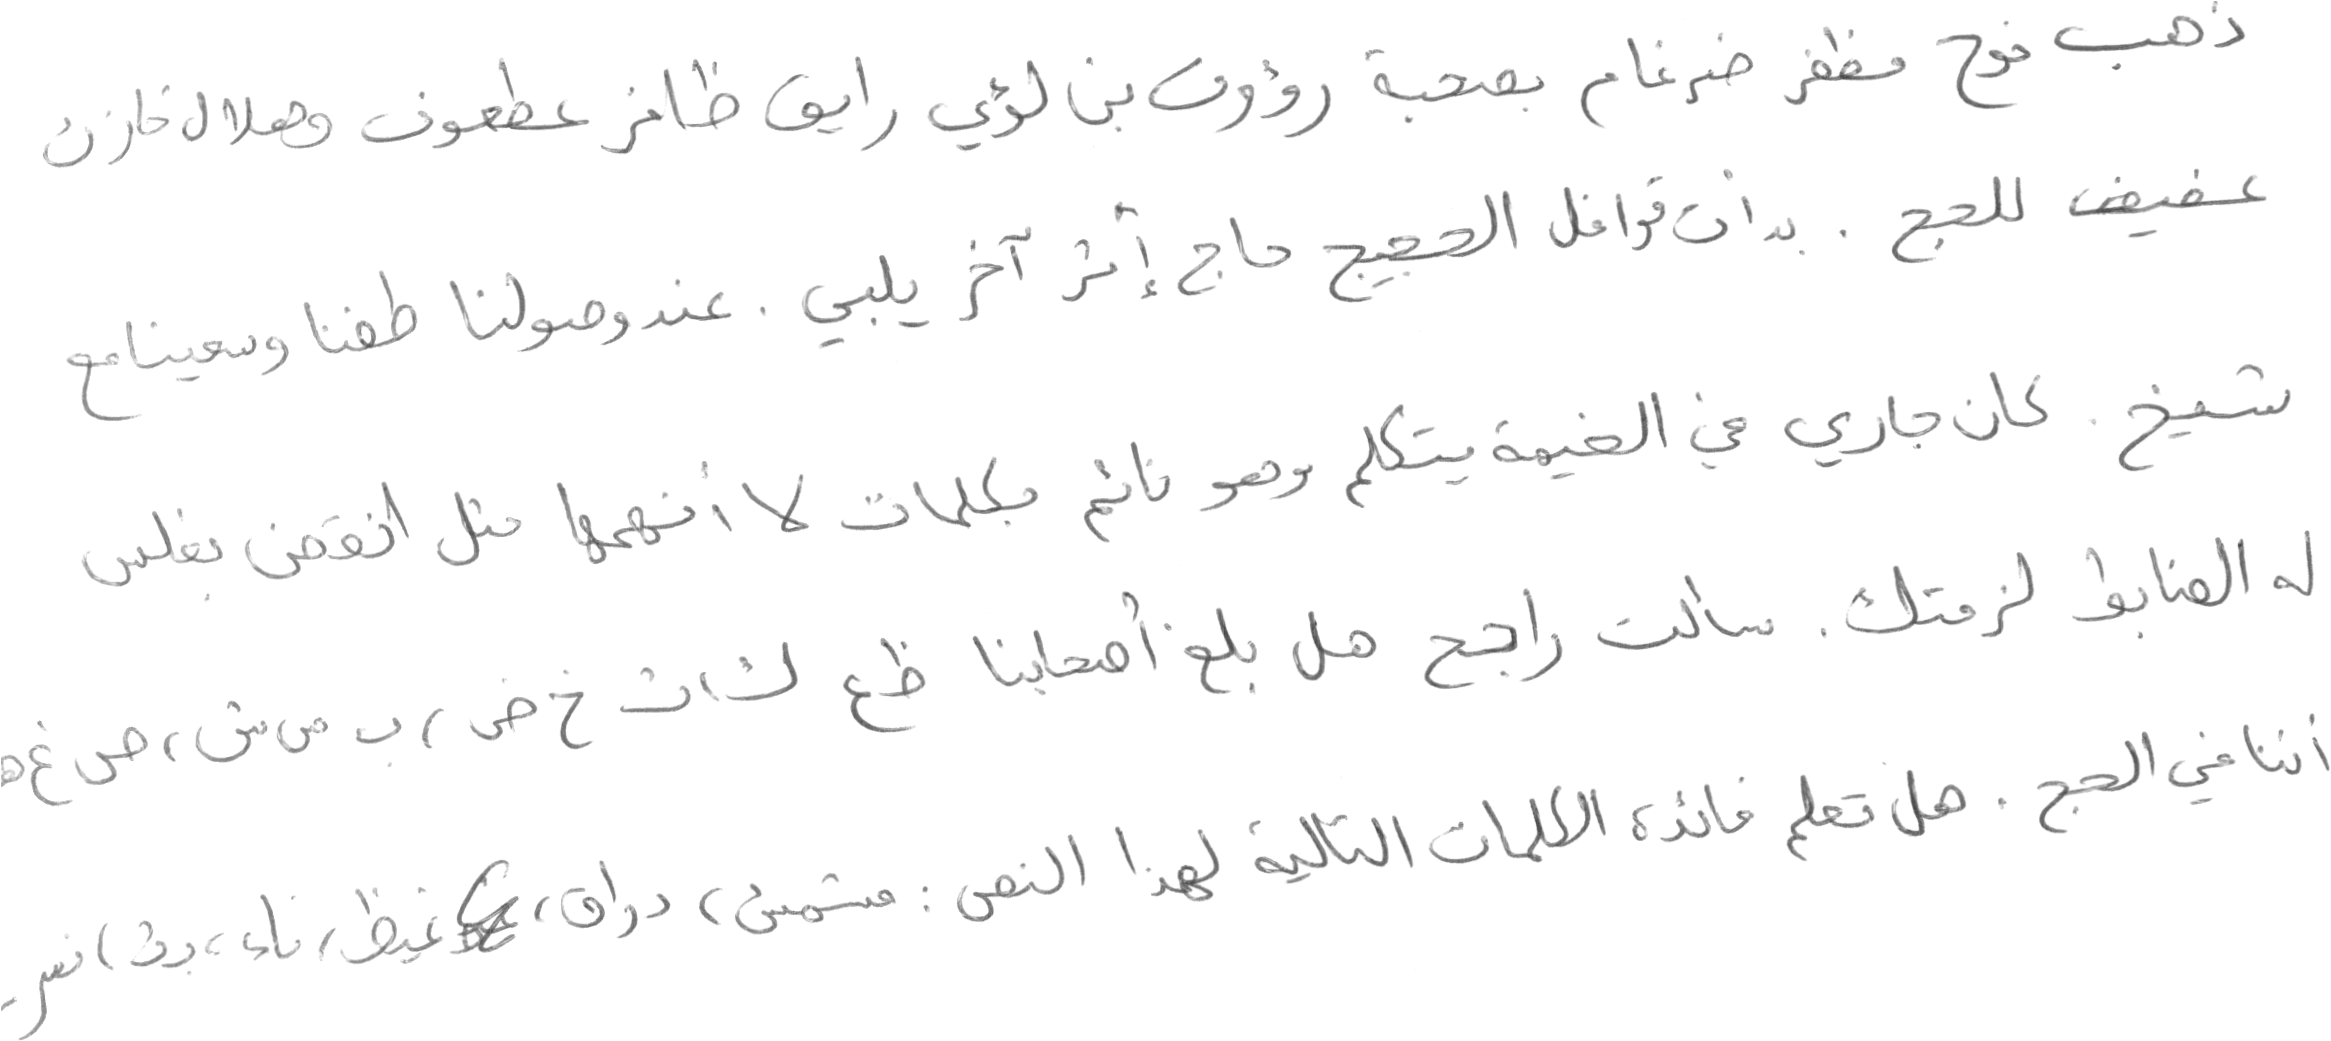 ذهب نوح مظفر ضرغام بصحبة رؤوف بن لؤي رايق ظافر عطعوف وهلال خازن
عفيف للحج . بدأت قوافل الحجيج حاج إثر آخر يلبي . عند وصولنا طفنا وسعينا مع
شيخ . كان جاري في الخيمة يتكلم وهو نائم بكلمات لا أفهمها مثل أنقض بغلس
له الضابط لزمتك . سألت راجح هل بلغ أصحابنا ظ ع ك ، ث خ ض ، ب س ش ، ص غ ه
أننا في الحج . هل تعلم فائدة الكلمات التالية لهذا النص : مشمش ، دراق ، غيظ ، ناء ، بث ، نسر .